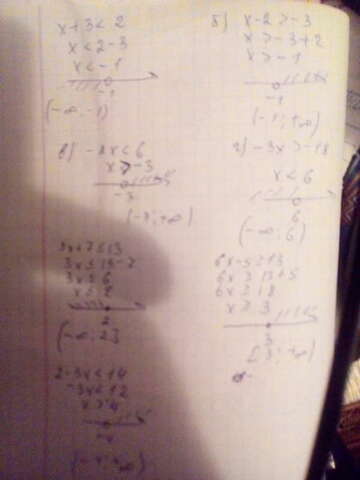 x+3<2
x<2-3
x<-1
-1
(-∞;-1)
б) x-2>-3
x>-3+2
x>-1
-1
(-1;+∞)
в) -2x<6
x>-3
-3
(-3;+∞)
г) -3x>-18
x<6
6
(-∞;6)
3x≤6
x≤2
2
(-∞;2]
6x-5≥13
6x≥13+5
6x≥18
x≥3
3
[3;+∞)
2-3x<14
-3x<12
x>-4
-4
(-4;+∞)